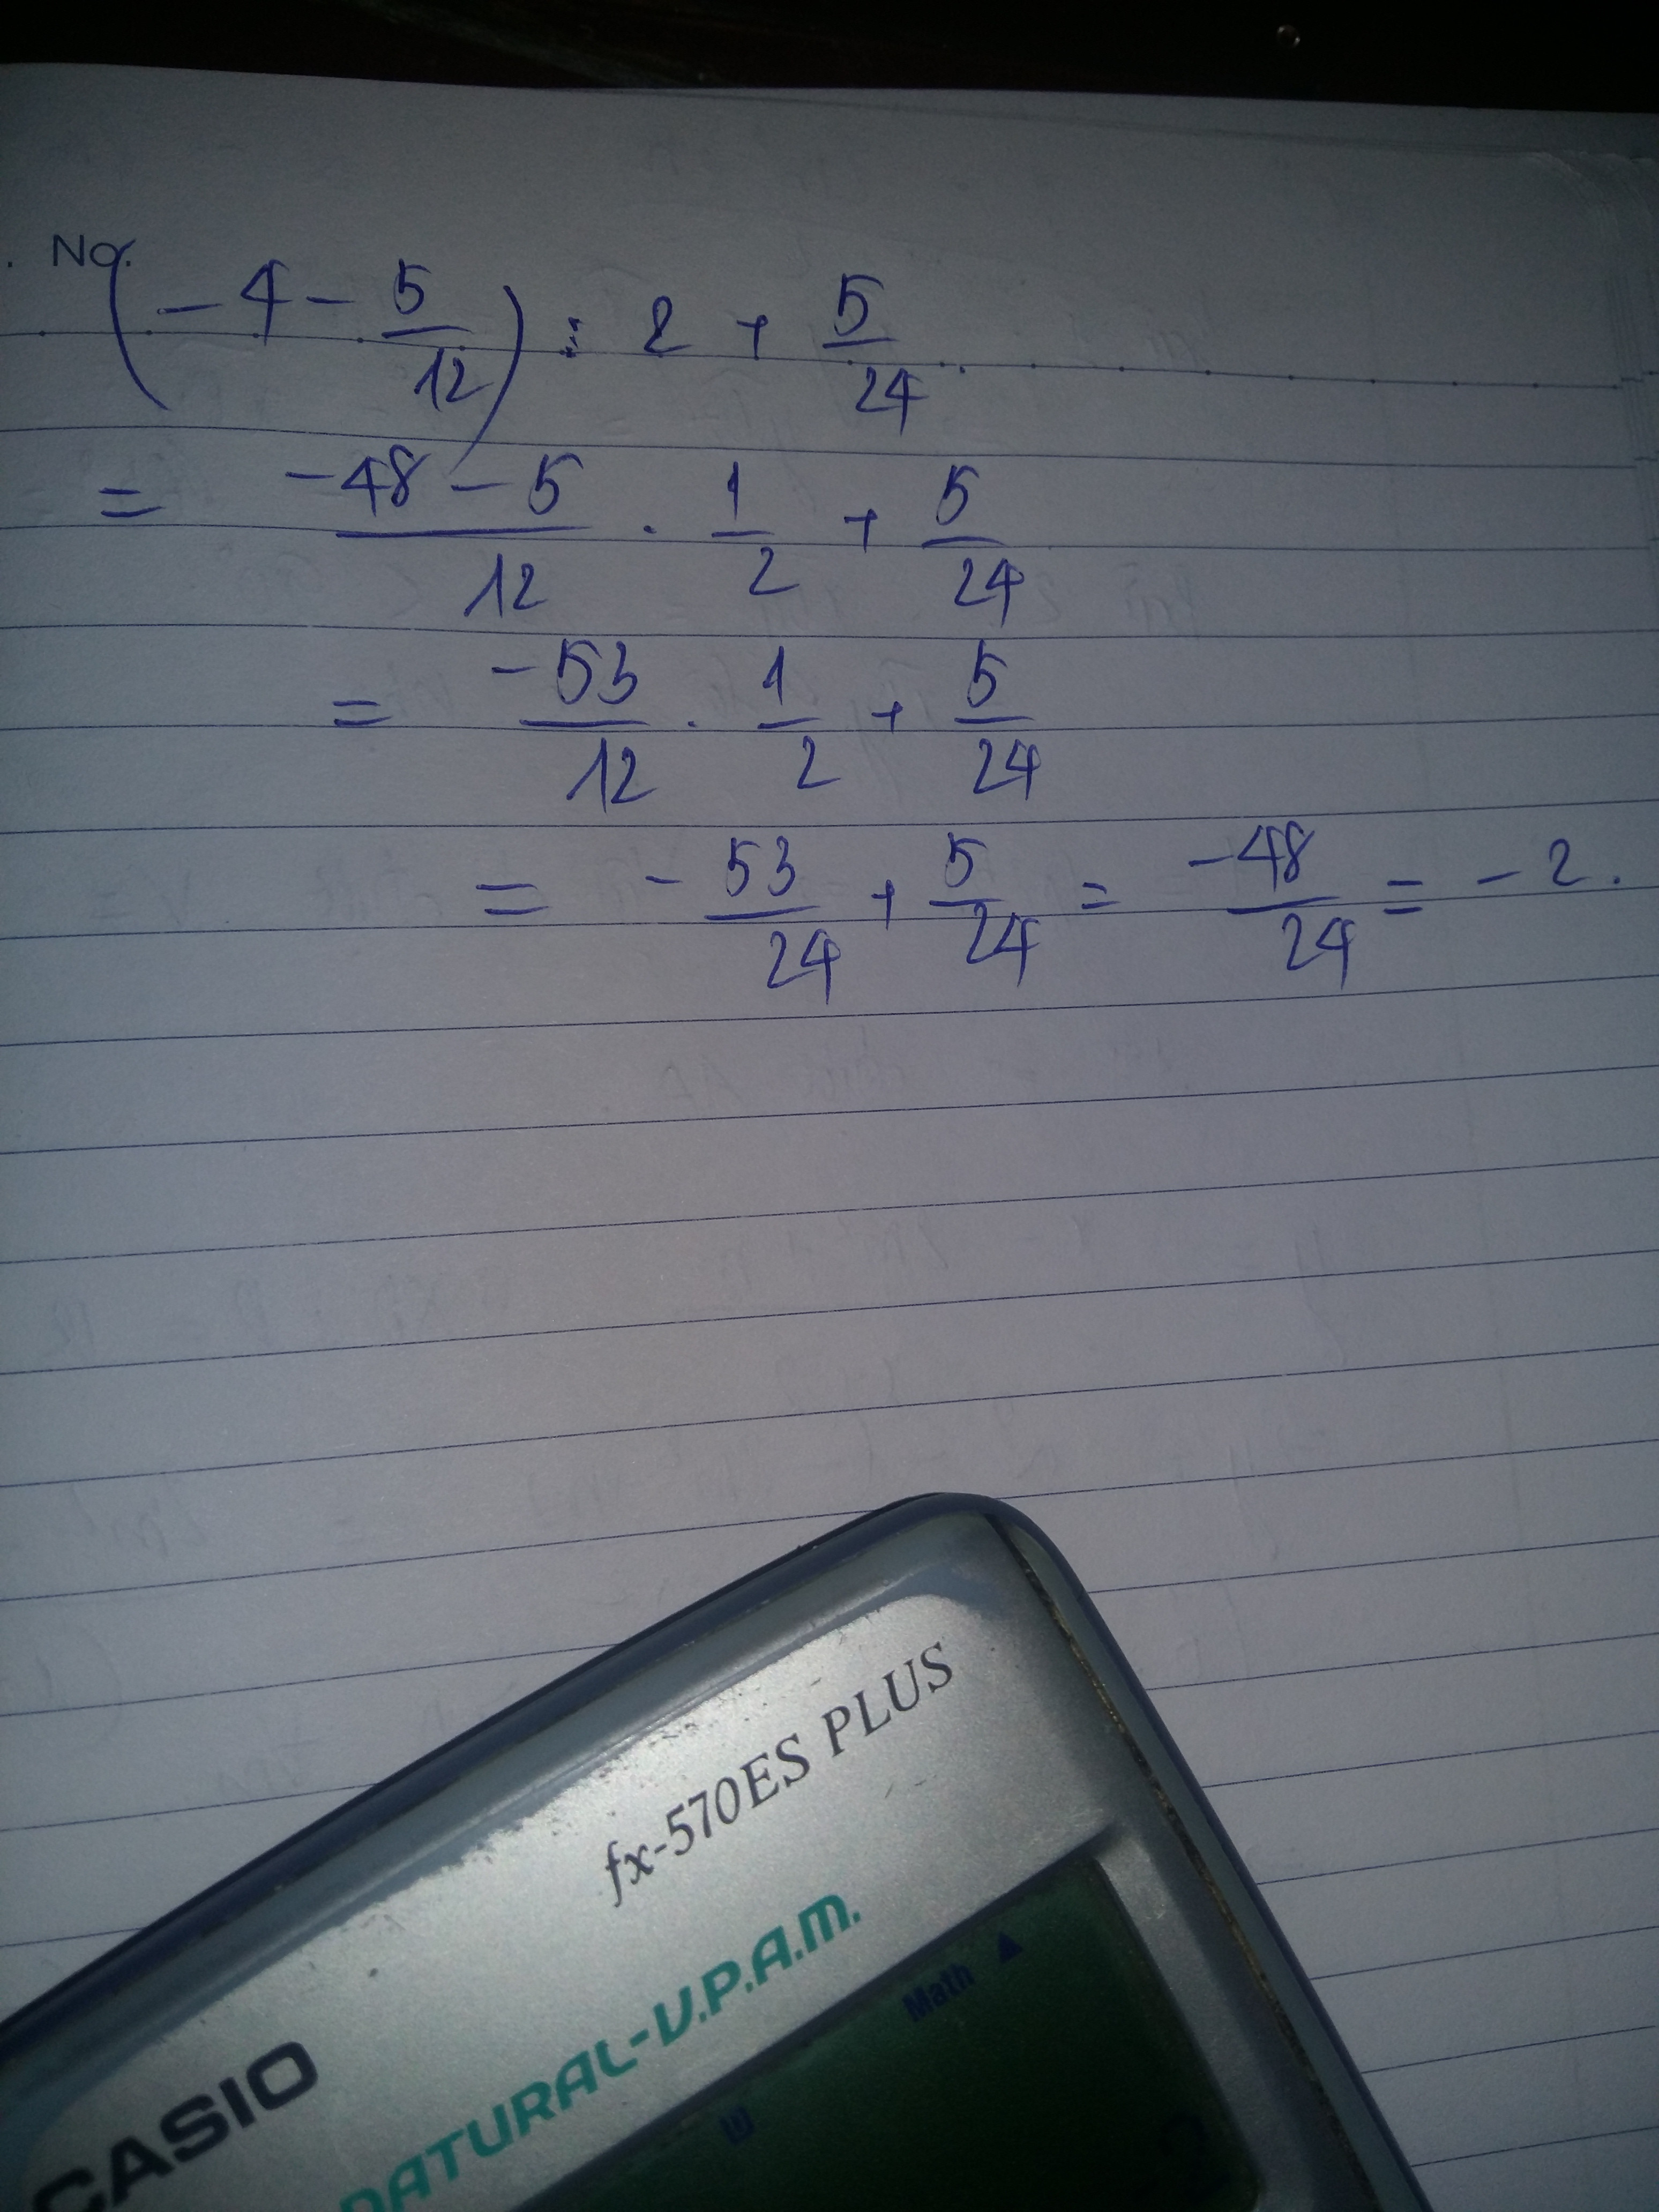 No.
(-4 - 5/12) : 2 + 5/24
= -48 - 5/12 . 1/2 + 5/24
= -53/12 . 1/2 + 5/24
= -53/24 + 5/24 = -48/24 = -2.
fx-570ES PLUS
CASIO
NATURAL-V.P.A.M.
Math ▲